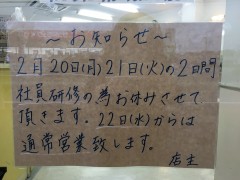 ～お知らせ～
2月20日(月)21日(火)の2日間
社員研修の為お休みさせて
頂きます。22日(水)からは
通常営業致します。
店主